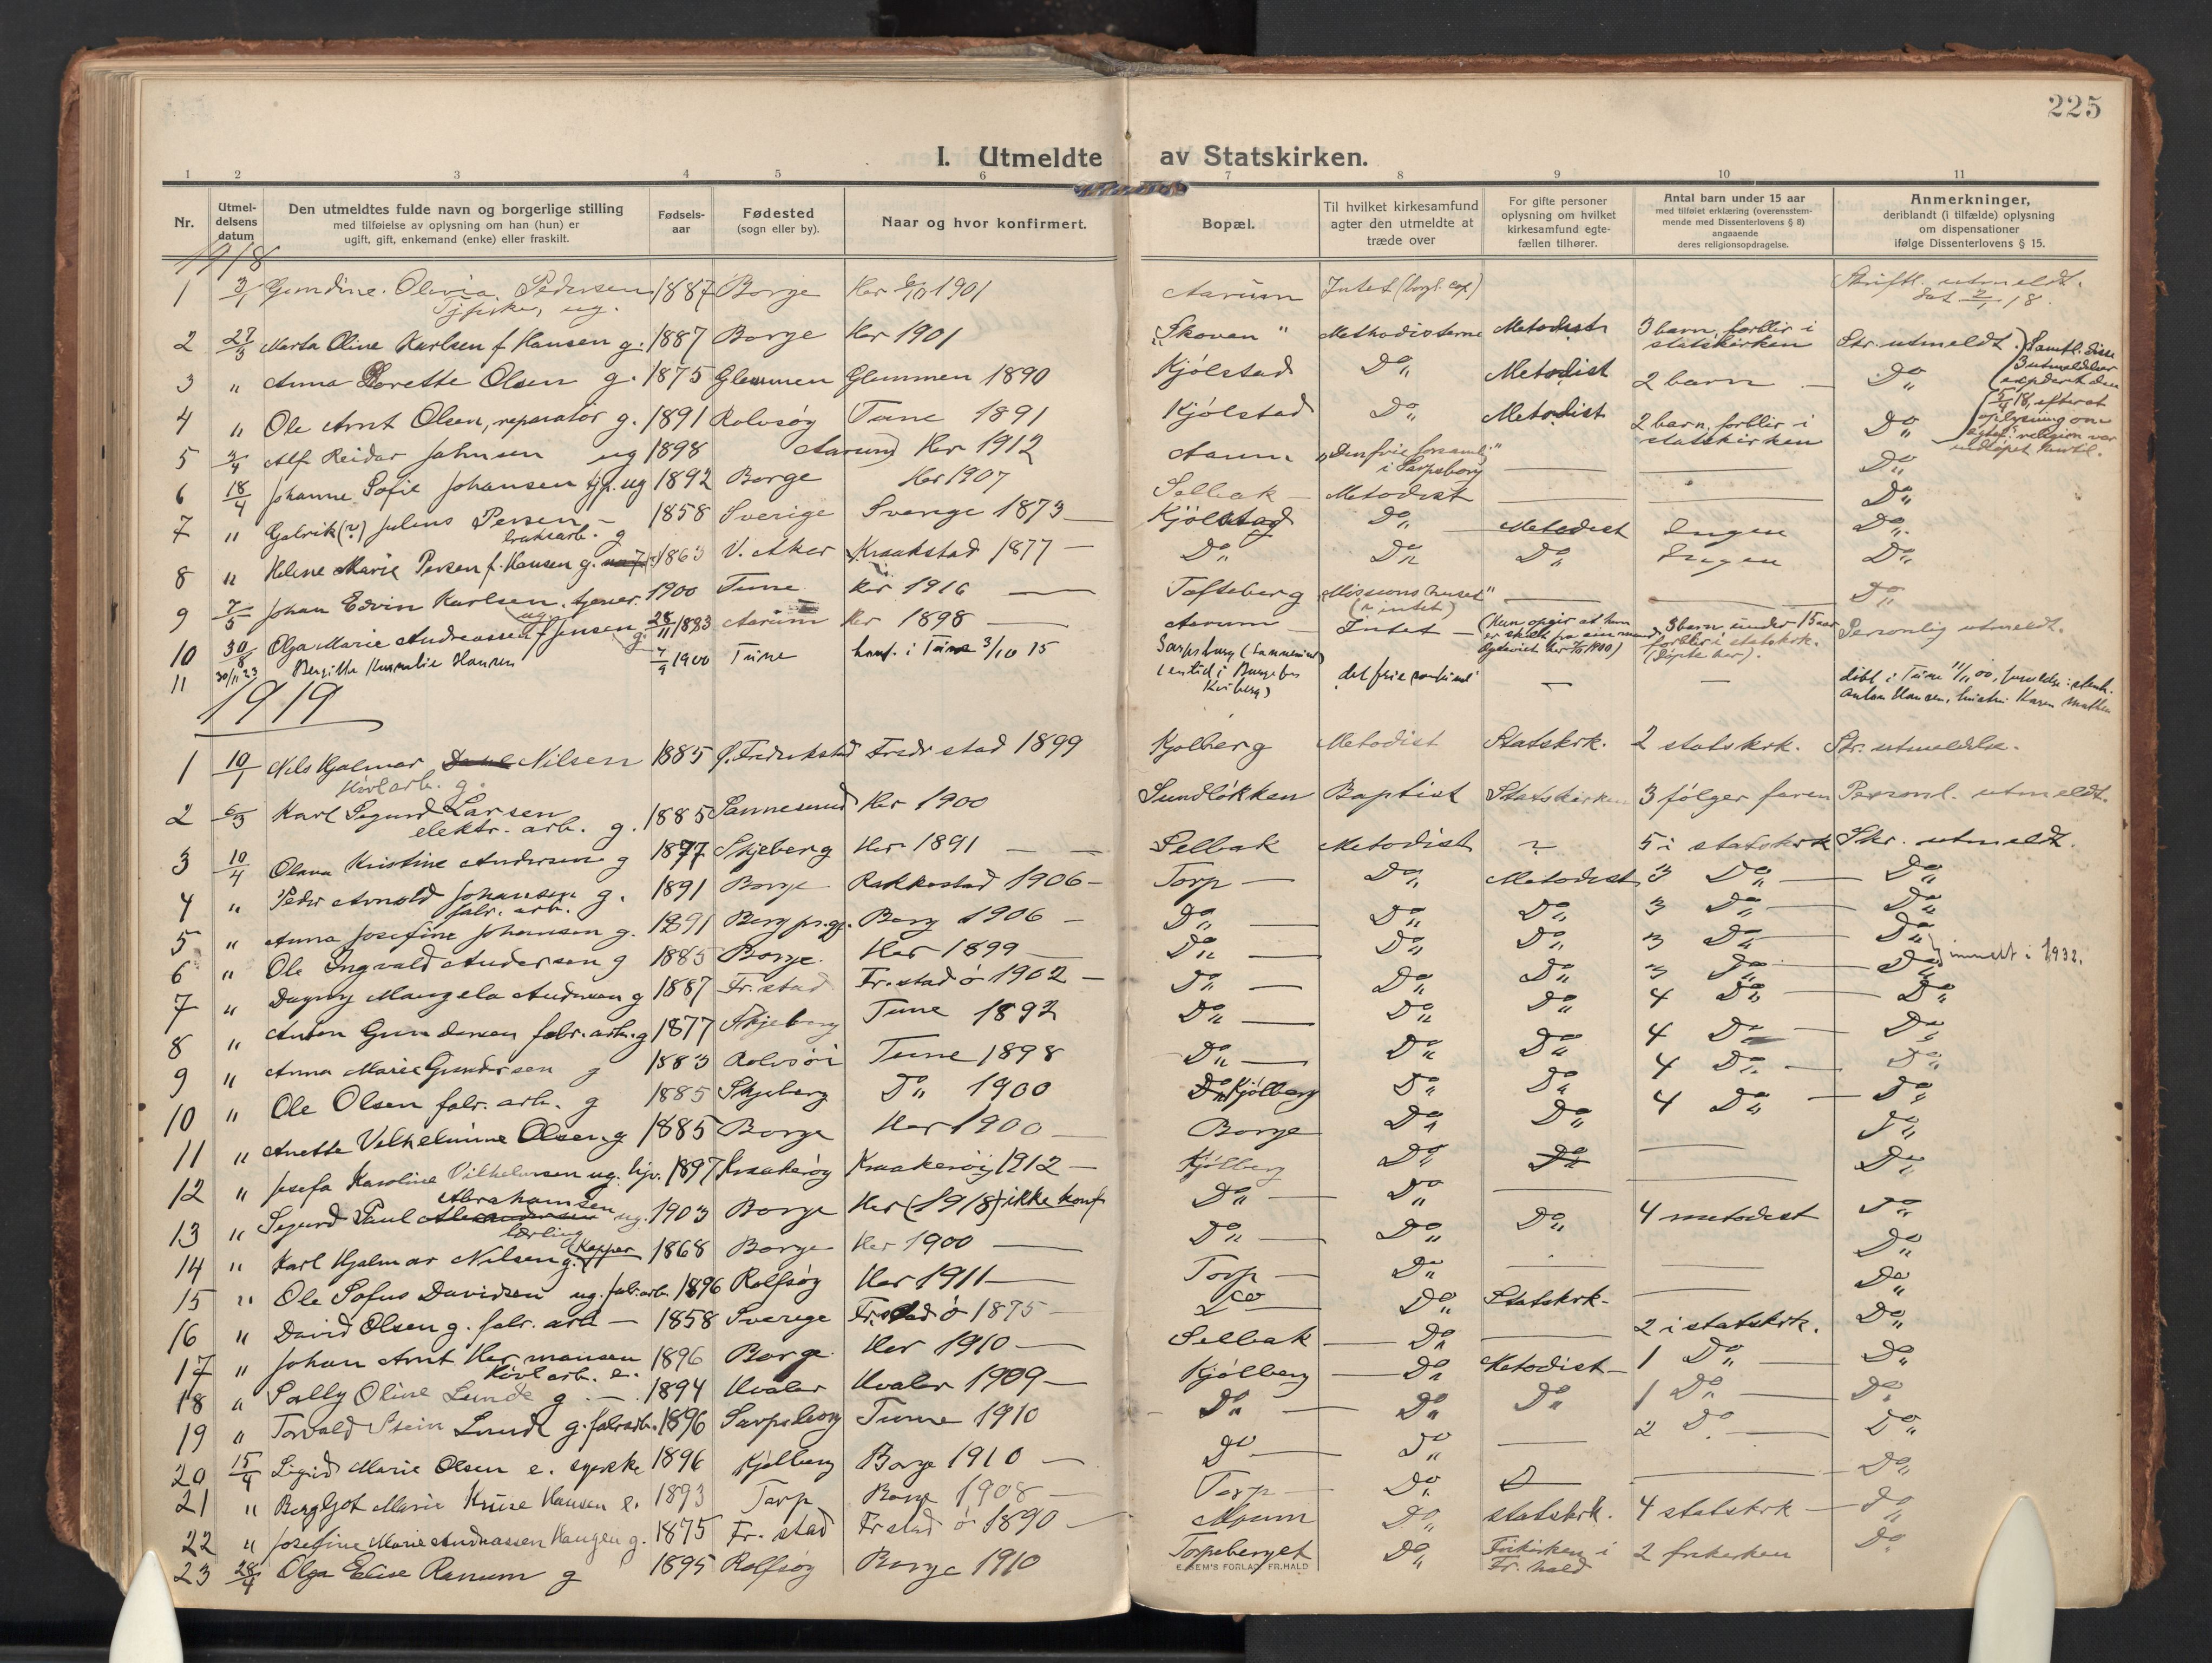 225
I. Utmeldte av Statskirken.
1 2 3 4 5 6 7 8 9 10 11
Nr.
Utmel-
delsens
datum
Den utmeldtes fulde navn og borgerlige stilling
med tilføielse av oplysning om han (hun) er
ugift, gift, enkemand (enke) eller fraskilt.
Fødsels-
aar
Fødested
(sogn eller by).
Naar og hvor konfirmert.
Bopæl.
Til hvilket kirkesamfund
agter den utmeldte at
træde over
For gifte personer
oplysning om hvilket
kirkesamfund egte-
fællen tilhører.
Antal barn under 15 aar
med tilføiet erklæring (overensstem-
mende med Dissenterlovens § 8)
angaaende
deres religionsopdragelse.
Anmerkninger,
deriblandt (i tilfælde) oplysning
om dispensationer
ifølge Dissenterlovens § 15.
1918
1 3/1 Gundine Olivia Pedersen 1887 Borge Her 6/10 1901 Aarum Intet (borgl. cop) Skriftl. utmeldt.
ug. dat 2/1 18.
2 27/3 Marta Oline Karlsen f. Hansen g. 1887 Borge Her 1901 "Skoven" Methodisterne Metodist 3 barn, forblir i statskirken Skr. utmeldt.
3 " Anna Lorette Olsen g. 1875 Glemmen Glemmen 1890 Kjølstad Do " Metodist 2 barn — Do "
4 " Ole Arnt Olsen, reparatør g. 1891 Rolvsøy Tune 1891 Kjølstad Do " Metodist 2 barn, forblir i statskirken Do "
Samtl. disse
3 utmeldelser
efterat
oplysning om
religion var
5 2/4 Alf Reidar Johnsen ug 1898 Aarum Her 1912 Aarum "Den frie forsaml." i Sarpsborg — — Do "
6 18/4 Johanne Sofie Johansen tjp. ug 1892 Borge Her 1907 Selbak — Metodist — — Do "
7 " Galrik(?) Julius Persen — g 1858 Sverige Sverige 1873 — Kjølstad Do " Metodist Ingen Do "
8 " Helene Marie Persen f. Hansen g. 1863 V. Aker Kraakstad 1877 — Do " Do " Do " Ingen Do "
9 7/5 Johan Edvin Karlsen, tjener. ug 1900 Tune Her 1916 — Tofteberg "Missionshuset" (? intet) — — Do "
10 30/8 Olga Marie Andreassen f. Jensen g. 28/11 1883 Aarum Her 1898 — Aarum — Intet — (Hun opgir at hun er skilt fra sin mand 3 barn under 15 aar forblir i statskrk. (Døpte her). Personlig utmeldt.
11 30/11 23 Birgitte Hansen 7/9 1900 Tune konf. i Tune 3/10 15 Sarpsborg (Sannesund) det frie samfund — — døbt i Tune 11/11 00,
Anton Hansen, hustru Karen
1919
1 10/1 Nils Hjalmar Nilsen 1885 Ø. Fredrikstad Fredrstad 1899 Kjølberg Metodist Statskrk. 2 statskrk. Skr. utmeldelse.
g.
2 6/3 Karl Sigurd Larsen 1885 Sannesund Her 1900 Sundløkken Baptist Statskirken 3 følger faren Personl. utmeldt.
elektr. arb. g.
3 10/4 Olava Kristine Andersen g 1877 Skjeberg Her 1891 — — Selbak Metodist ? 5 i statskrk Skr. utmeldt.
4 " Peder Arnold Johansen g. 1891 Borge Rakkestad 1906 — Torp — Do " Metodist 3 Do " — Do "
fabr. arb.
5 " Anna Josefine Johansen g. 1891 Berg pr.gj. Berg 1906 — Do " — Do " Do " 3 Do " — Do "
6 " Ole Ingvald Andersen g 1885 Borge. Her 1899 — Do " — Do " Do " 3 Do " — Do "
7 " Dagny Mangela Andersen g 1887 Fr.stad Fr.stad ø 1902 — Do " — Do " Do " 3 Do " — Do " innmeldt i 1932.
8 " Anton Gundersen fabr. arb. g 1877 Skjeberg Tune 1892 Do " — Do " Do " 4 Do " Do "
9 " Anna Marie Gundersen g 1883 Rolvsøi Tune 1898 Do " — Do " Do " 4 Do " — Do "
10 " Ole Olsen fabr. arb. g 1885 Skjeberg Do " 1900 Do " Kjølberg Do " Do " 4 Do " — Do "
11 " Anette Vilhelmine Olsen g 1885 Borge Her 1900 — Borge Do " Do " 4 Do " — Do "
12 " Josefa Karoline Vilhelmsen ug. 1897 Kraakerøy Kraakerøy 1912 — Kjølberg Do " Do " — Do "
13 " Sigurd Paul Abrahamsen ug. 1903 Borge Her (1918) ikke konf. Do " — Do " — — Do "
lærling
14 " Karl Hjalmar Nilsen g. 1868 Borge Her 1900 — Do " — Do " Do " 4 metodist Do "
15 " Ole Sofus Davidsen ug. fabr. arb. 1896 Rolfsøy Her 1911 — Torp — Do " — Do "
16 " David Olsen g. fabr. arb — 1858 Sverige Fr.stad ø 1875 — Do Do " Statskrk. — Do "
17 " Johan Arnt Hermansen 1896 Borge. Her 1910 — Selbak — Do " — 2 i statskrk. Do "
e.
18 " Sally Oline Lunde g — 1894 Hvaler Hvaler 1909 — Kjølberg — Do " Metodist — 1 Do " — Do "
19 " Torvald Stein Lunde g. fabrarb. 1896 Sarpsborg Tune 1910 Do " — Do " Do " 1 Do " — Do "
20 15/4 Sigrid Marie Olsen e. syerske 1896 Kjølberg Borge 1910 — Do — Do " — 2 Do — Do "
21 " Bergljot Marie Kruse Hansen e. 1893 Torp Borge 1908 — Torp — Do " — Do "
22 " Josefine Marie Andreassen Haugen g. 1875 Fr. stad Frstad ø 1890 — Do " statskrk. 4 statskrk — Do "
23 28/4 Olga Elise Ranum g 1895 Rolfsøy Borge 1910 Torpeberget Do " Frikirken i Fr. hald 2 frikirken Do "
E. SEM'S FORLAG, FR.HALD